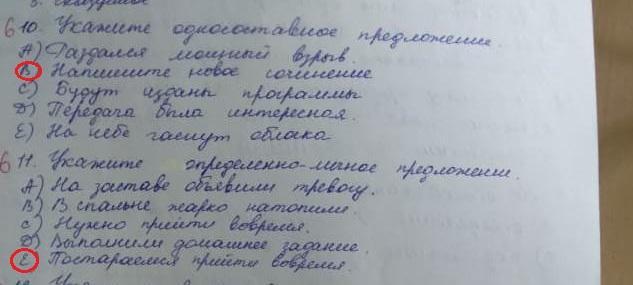 6 10. Укажите односоставное предложение.
А) Раздался мощный взрыв.
В) Напишите новое сочинение
С) Будут изданы программы
D) Передача была интересная.
Е) На небе гаснут облака
6 11. Укажите определенно-личное предложение.
А) На заставе объявили тревогу.
В) В спальне жарко натопили.
С) Нужно прийти вовремя.
D) Выполнили домашнее задание.
Е) Постараемся прийти вовремя.